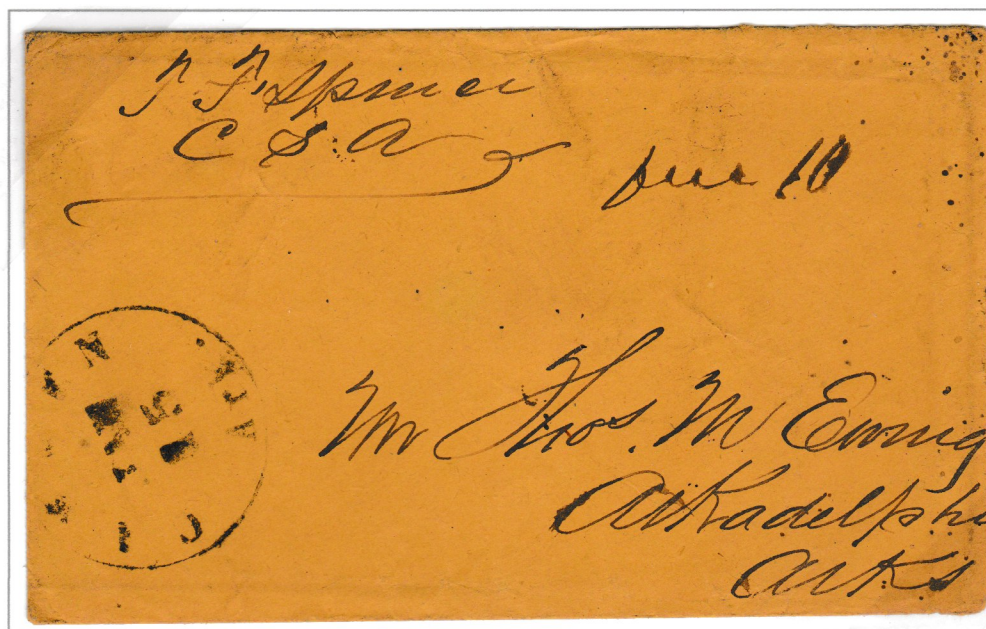 T F Spincer
C S A
Due 10
Mr Thos. M Ewing
Arkadelphi
Arks